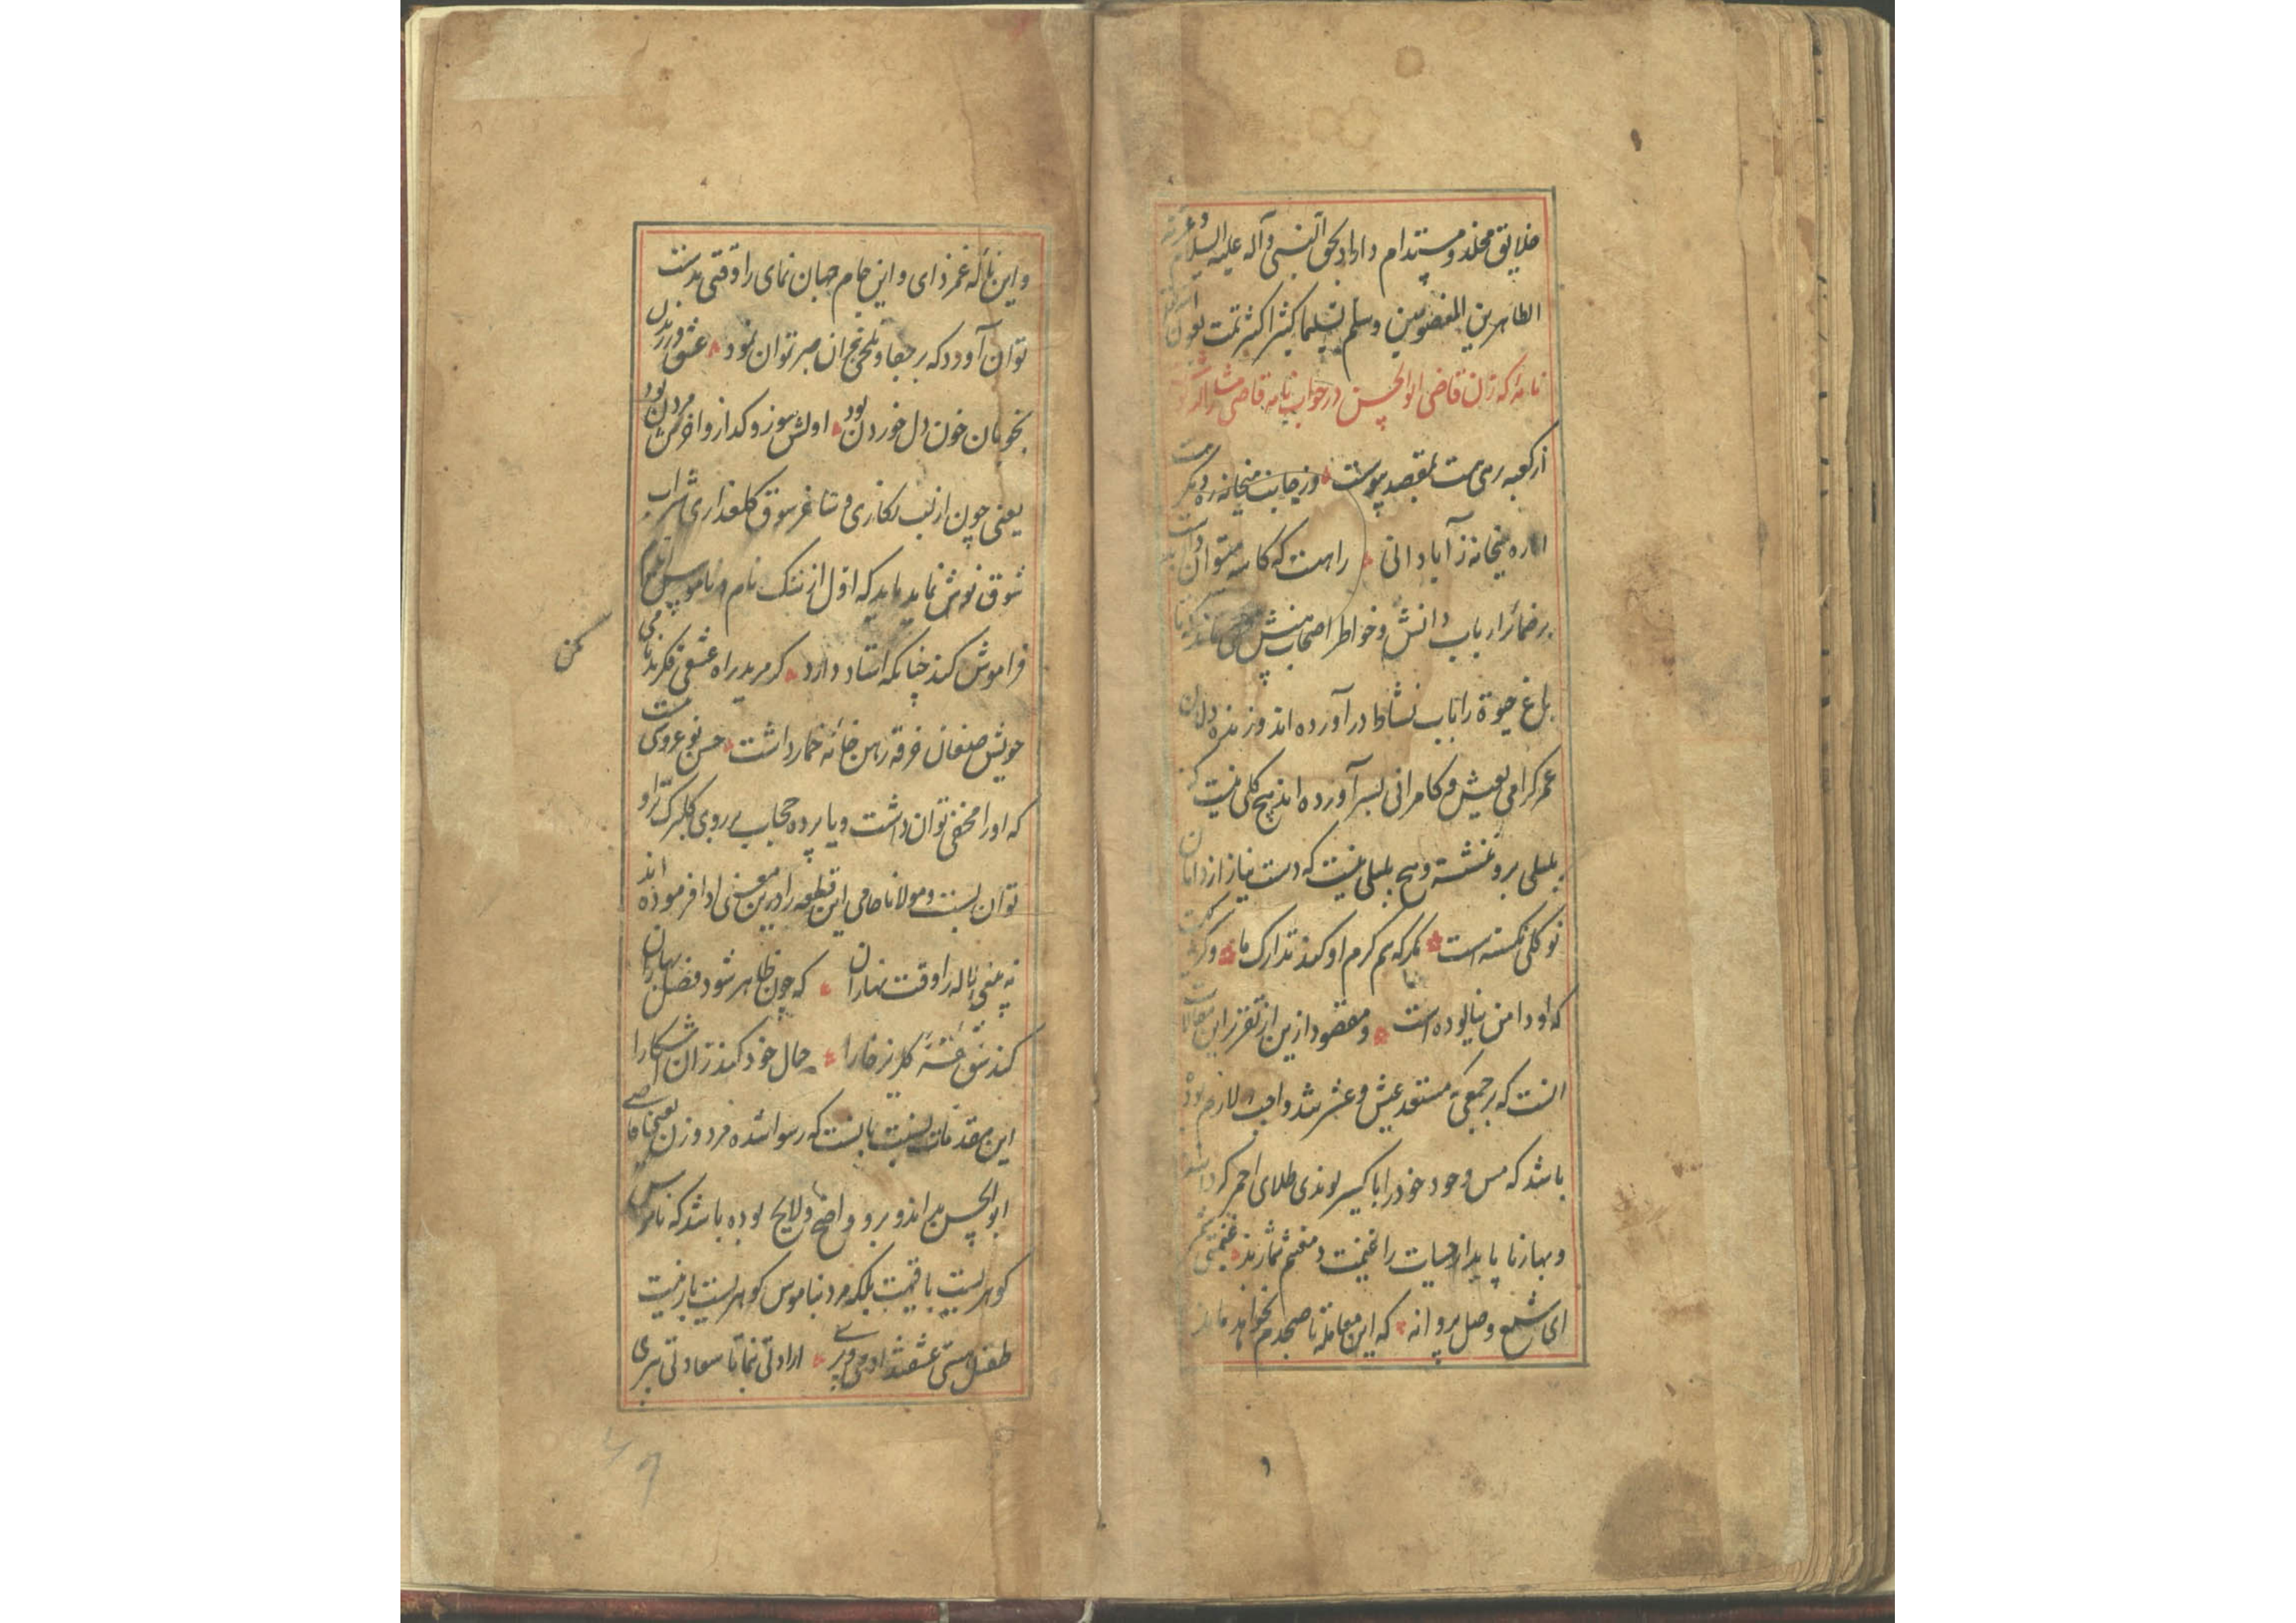 خلایق مخلد و مستدام داراد بحق النبی و آله علیه السلام و عترته
الطاهرین المعصومین وسلم تسلیما کثیرا کثیرا تمت بعون
نامهٔ که زن قاضی ابوالحسن در جواب نامه قاضی
از کعبه رهی هست بمقصد پیوست وز جانب میخانه ره دیگر هست
اما ره میخانه ز آبادانی راهست که کاسه میتوان
بر ضمائر ارباب دانش و خواطر اصحاب بینش مخفی نماند که تا
باغ حیوة را بآب نشاط در آورده اند و زنده دلان
عمر کرامی بعیش و کامرانی بسر آورده اند هیچ کلی نیست که
بلبلی برو ننشسته و هیچ بلبلی نیست که دست نیاز از دامان
نو کلی نکسسته است مکر که هم کرم او کند تدارک ما و کر
که او دامن نیالوده است و مقصود ازین از تقریر این مقالات
انست که بر جمعی که مستعد عیش و عشرتند واجب و لازم بوده
باشد که مس وجود خود را باکسیر لوندی طلای احمر کردانند
و بهار ناپایدار حیات را غنیمت و مغتنم شمارند غنیمتی شمر
ای شمع وصل پروانه که این معامله تا صبحدم نخواهد ماند
و این نالهٔ غمزدای و این جام جهان نمای را وقتی بدست
توان آورد که بر جفا و تلخی هجران صبر توان نمود عشق ورزیدن
بخوبان خون دل خوردن بود اولش سوز و کداز و آخرش مردن بود
یعنی چون از لب نکاری و ساغر شوق کلعذاری شراب
شوق نوش نماید باید که اول از ننک نام و ناموس
فراموش کند چنانکه استاد دارد کر مرید راه عشقی فکر بدنامی
مکن
شیخ صنعان خرقه رهن خانه خمار داشت حسن نو عروسی نیست
که او را مخفی توان داشت و یا پرده حجاب بر روی کلبرک تر او
توان بست و مولانا جامی این قطعه را درین معنی ادا فرموده اند
نه بینی لاله را وقت بهاران که چون ظاهر شود فصل بهاران
کند شق شقهٔ کلریز خارا جمال خود کند زان آشکارا
این مقدمات نسبت بانست که رسوا شده فرد و زن یعنی قاضی
ابوالحسن میداند و برو واضح و لایح بوده باشد که ناموس
کوهریست با قیمت بلکه مرد بناموس کوهریست بازینت
طفیل هستی عشقند آدمی و پری ارادتی بنما تا سعادتی ببری